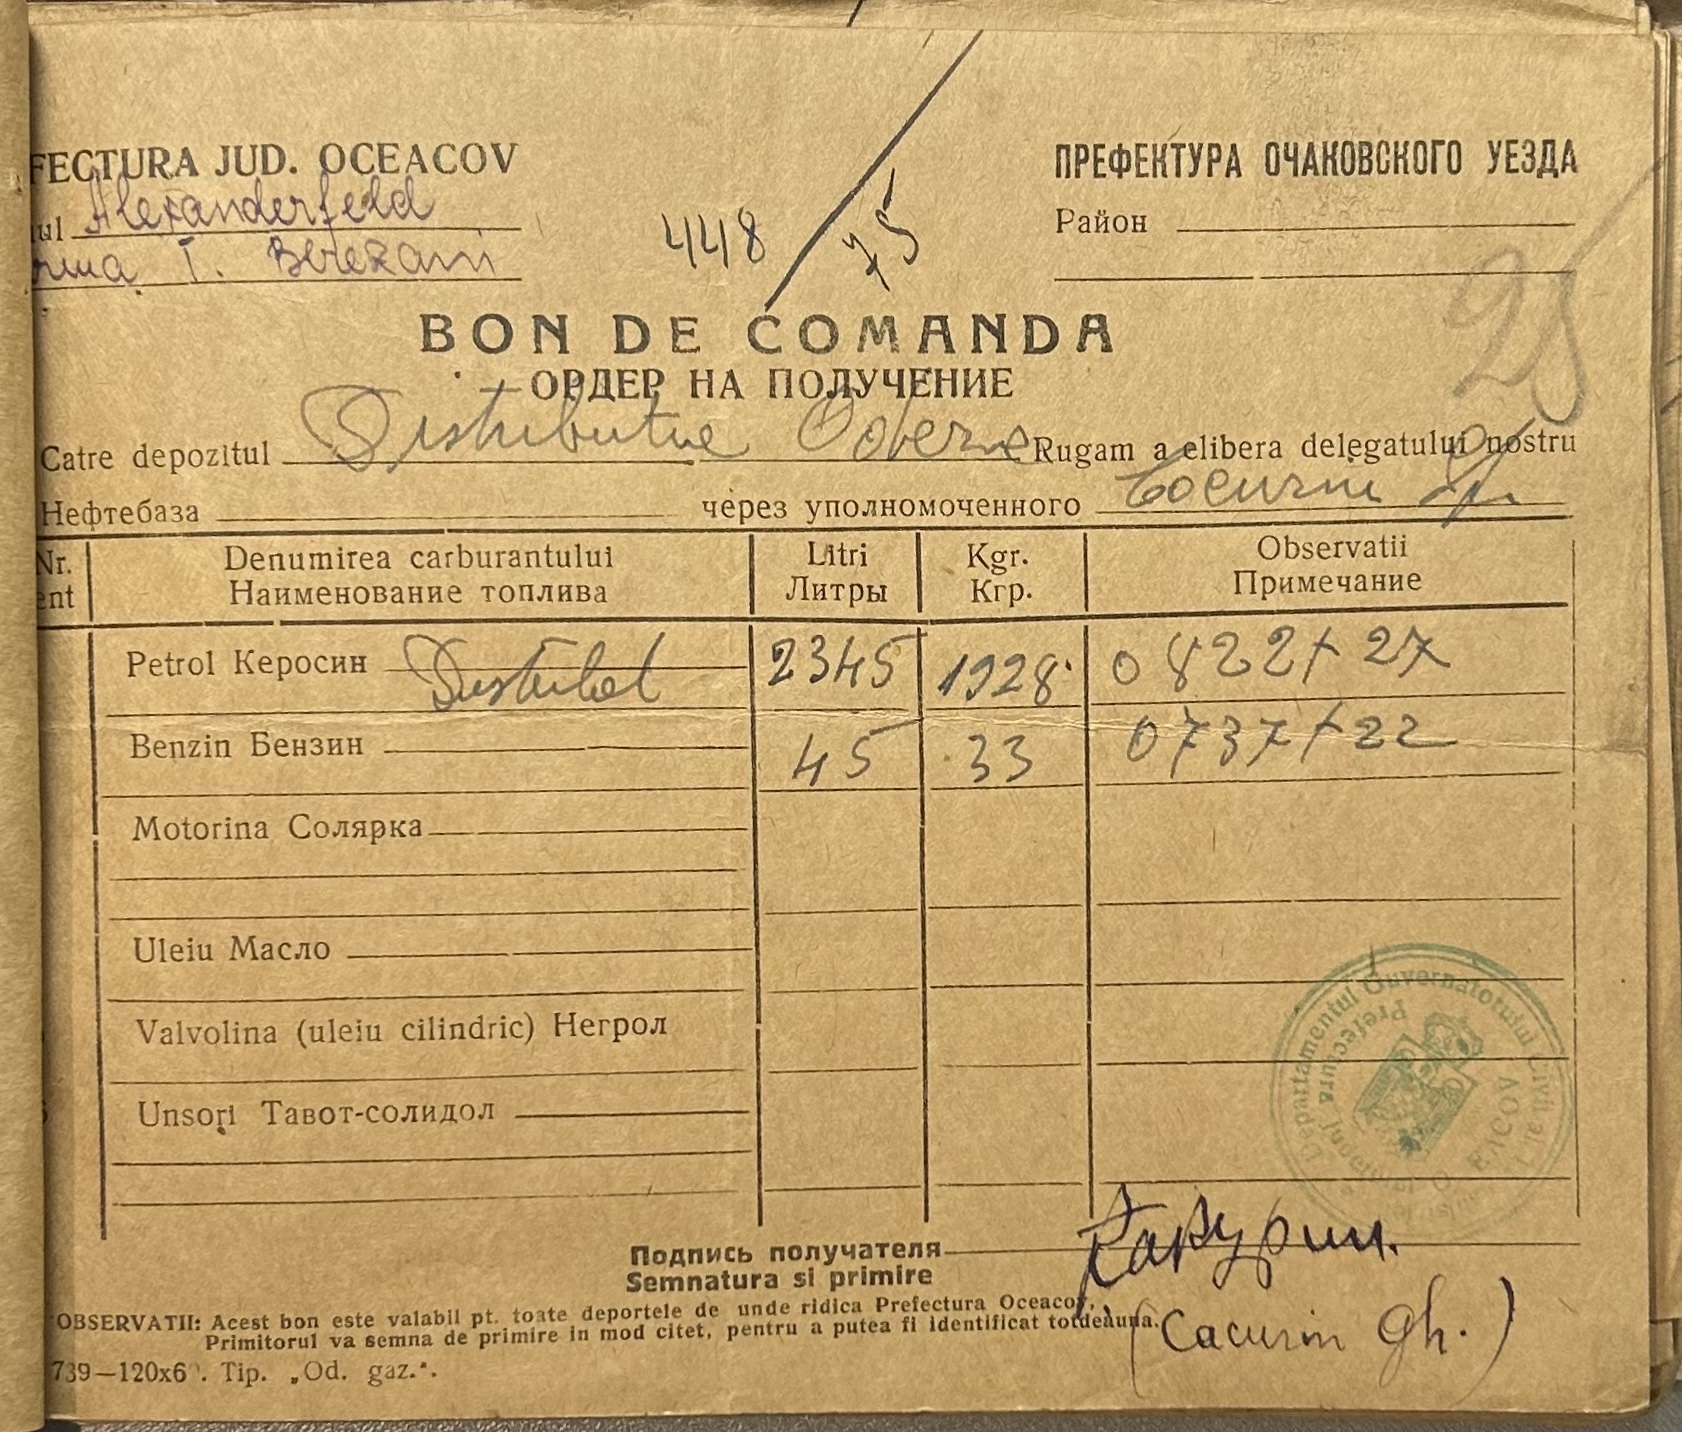 FECTURA JUD. OCEACOV
ul Alexanderfeld
rma T. Berezani
448 / 75
ПРЕФЕКТУРА ОЧАКОВСКОГО УЕЗДА
Район
25
BON DE COMANDA
ОРДЕР НА ПОЛУЧЕНИЕ
Catre depozitul Distributie Rugam a elibera delegatului nostru
Нефтебаза через уполномоченного
Nr. Denumirea carburantului Litri Kgr. Observatii
ent Наименование топлива Литры Кгр. Примечание
Petrol Керосин 2345 1928 0822/+27
Benzin Бензин 45 33 0737/+22
Motorina Солярка
Uleiu Масло
Valvolina (uleiu cilindric) Негрол
Unsori Тавот-солидол
Departamentul Guvernatorului Civil
Prefectura Judetului
Подпись получателя Какурин.
Semnatura si primire
OBSERVATII: Acest bon este valabil pt. toate deportele de unde ridica Prefectura Oceacov,
Primitorul va semna de primire in mod citet, pentru a putea fi identificat totdeauna.
(Cacurin Gh.)
739—120x6 . Tip. „Od. gaz.".